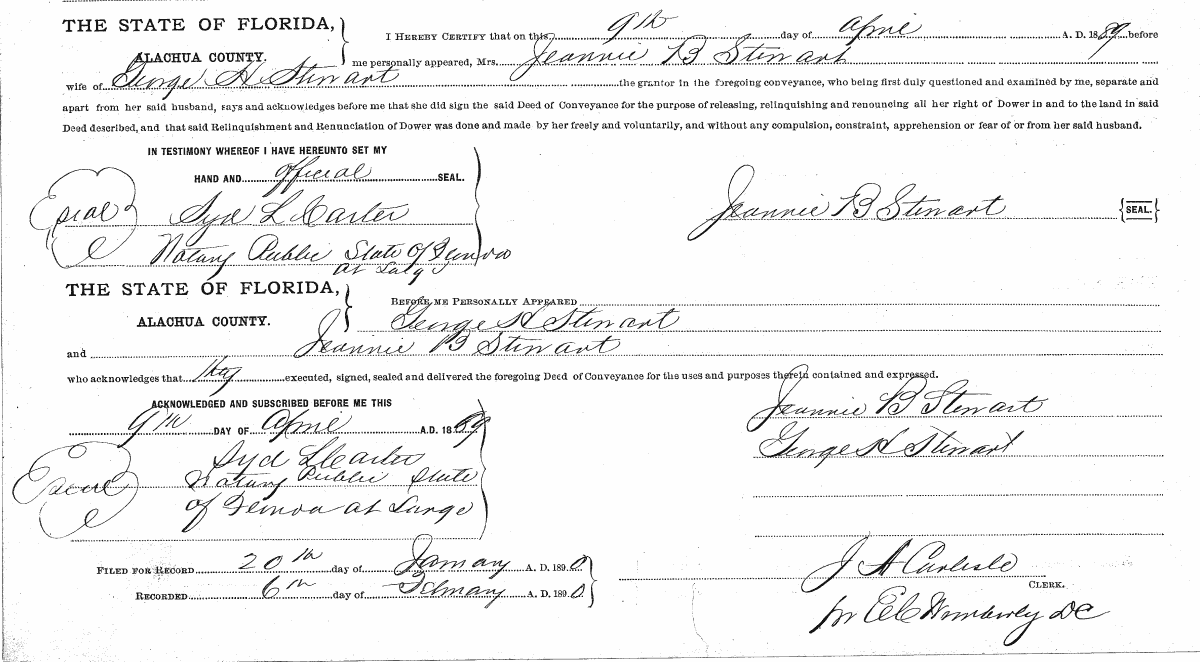 THE STATE OF FLORIDA, } I HEREBY CERTIFY that on this 9th day of April A. D. 1889 before
ALACHUA COUNTY. me personally appeared, Mrs. Jeannie B Stewart
wife of George H Stewart the grantor in the foregoing conveyance, who being first duly questioned and examined by me, separate and
apart from her said husband, says and acknowledges before me that she did sign the said Deed of Conveyance for the purpose of releasing, relinquishing and renouncing all her right of Dower in and to the land in said
Deed described, and that said Relinquishment and Renunciation of Dower was done and made by her freely and voluntarily, and without any compulsion, constraint, apprehension or fear of or from her said husband.
IN TESTIMONY WHEREOF I HAVE HEREUNTO SET MY
HAND AND official SEAL.
Seal Syd L Carter Jeannie B Stewart {SEAL.}
Notary Public State of Florida
At Large
THE STATE OF FLORIDA, } BEFORE ME PERSONALLY APPEARED
ALACHUA COUNTY. George H Stewart
and Jeannie B Stewart
who acknowledges that they executed, signed, sealed and delivered the foregoing Deed of Conveyance for the uses and purposes therein contained and expressed.
ACKNOWLEDGED AND SUBSCRIBED BEFORE ME THIS Jeannie B Stewart
9th DAY OF April A.D. 1889
Syd L Carter George H Stewart
Seal Notary Public State
of Florida at Large
FILED FOR RECORD 20th day of January A. D. 1890. J A Carlisle
RECORDED 6th day of February A. D. 1890. CLERK.
Wimberley DC